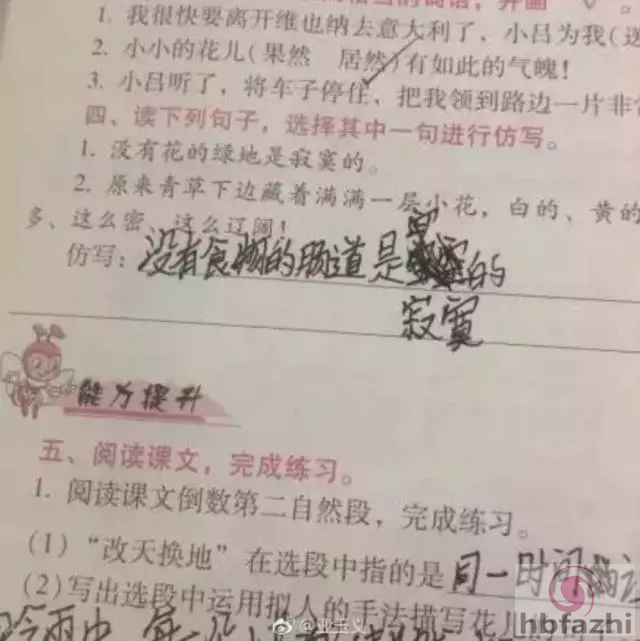 1. 我很快要离开维也纳去意大利了，小吕为我(送
2. 小小的花儿(果然 居然)有如此的气魄！
3. 小吕听了，将车子停住，把我领到路边一片非常
四、读下列句子，选择其中一句进行仿写。
1. 没有花的绿地是寂寞的。
2. 原来青草下边藏着满满一层小花，白的、黄的
多、这么密、这么辽阔！
仿写：没有食物的肠道是的
寂寞
能力提升
五、阅读课文，完成练习。
1. 阅读课文倒数第二自然段，完成练习。
(1)“改天换地”在选段中指的是同一时间
(2)写出选段中运用拟人的手法描写花儿
hbfazhi